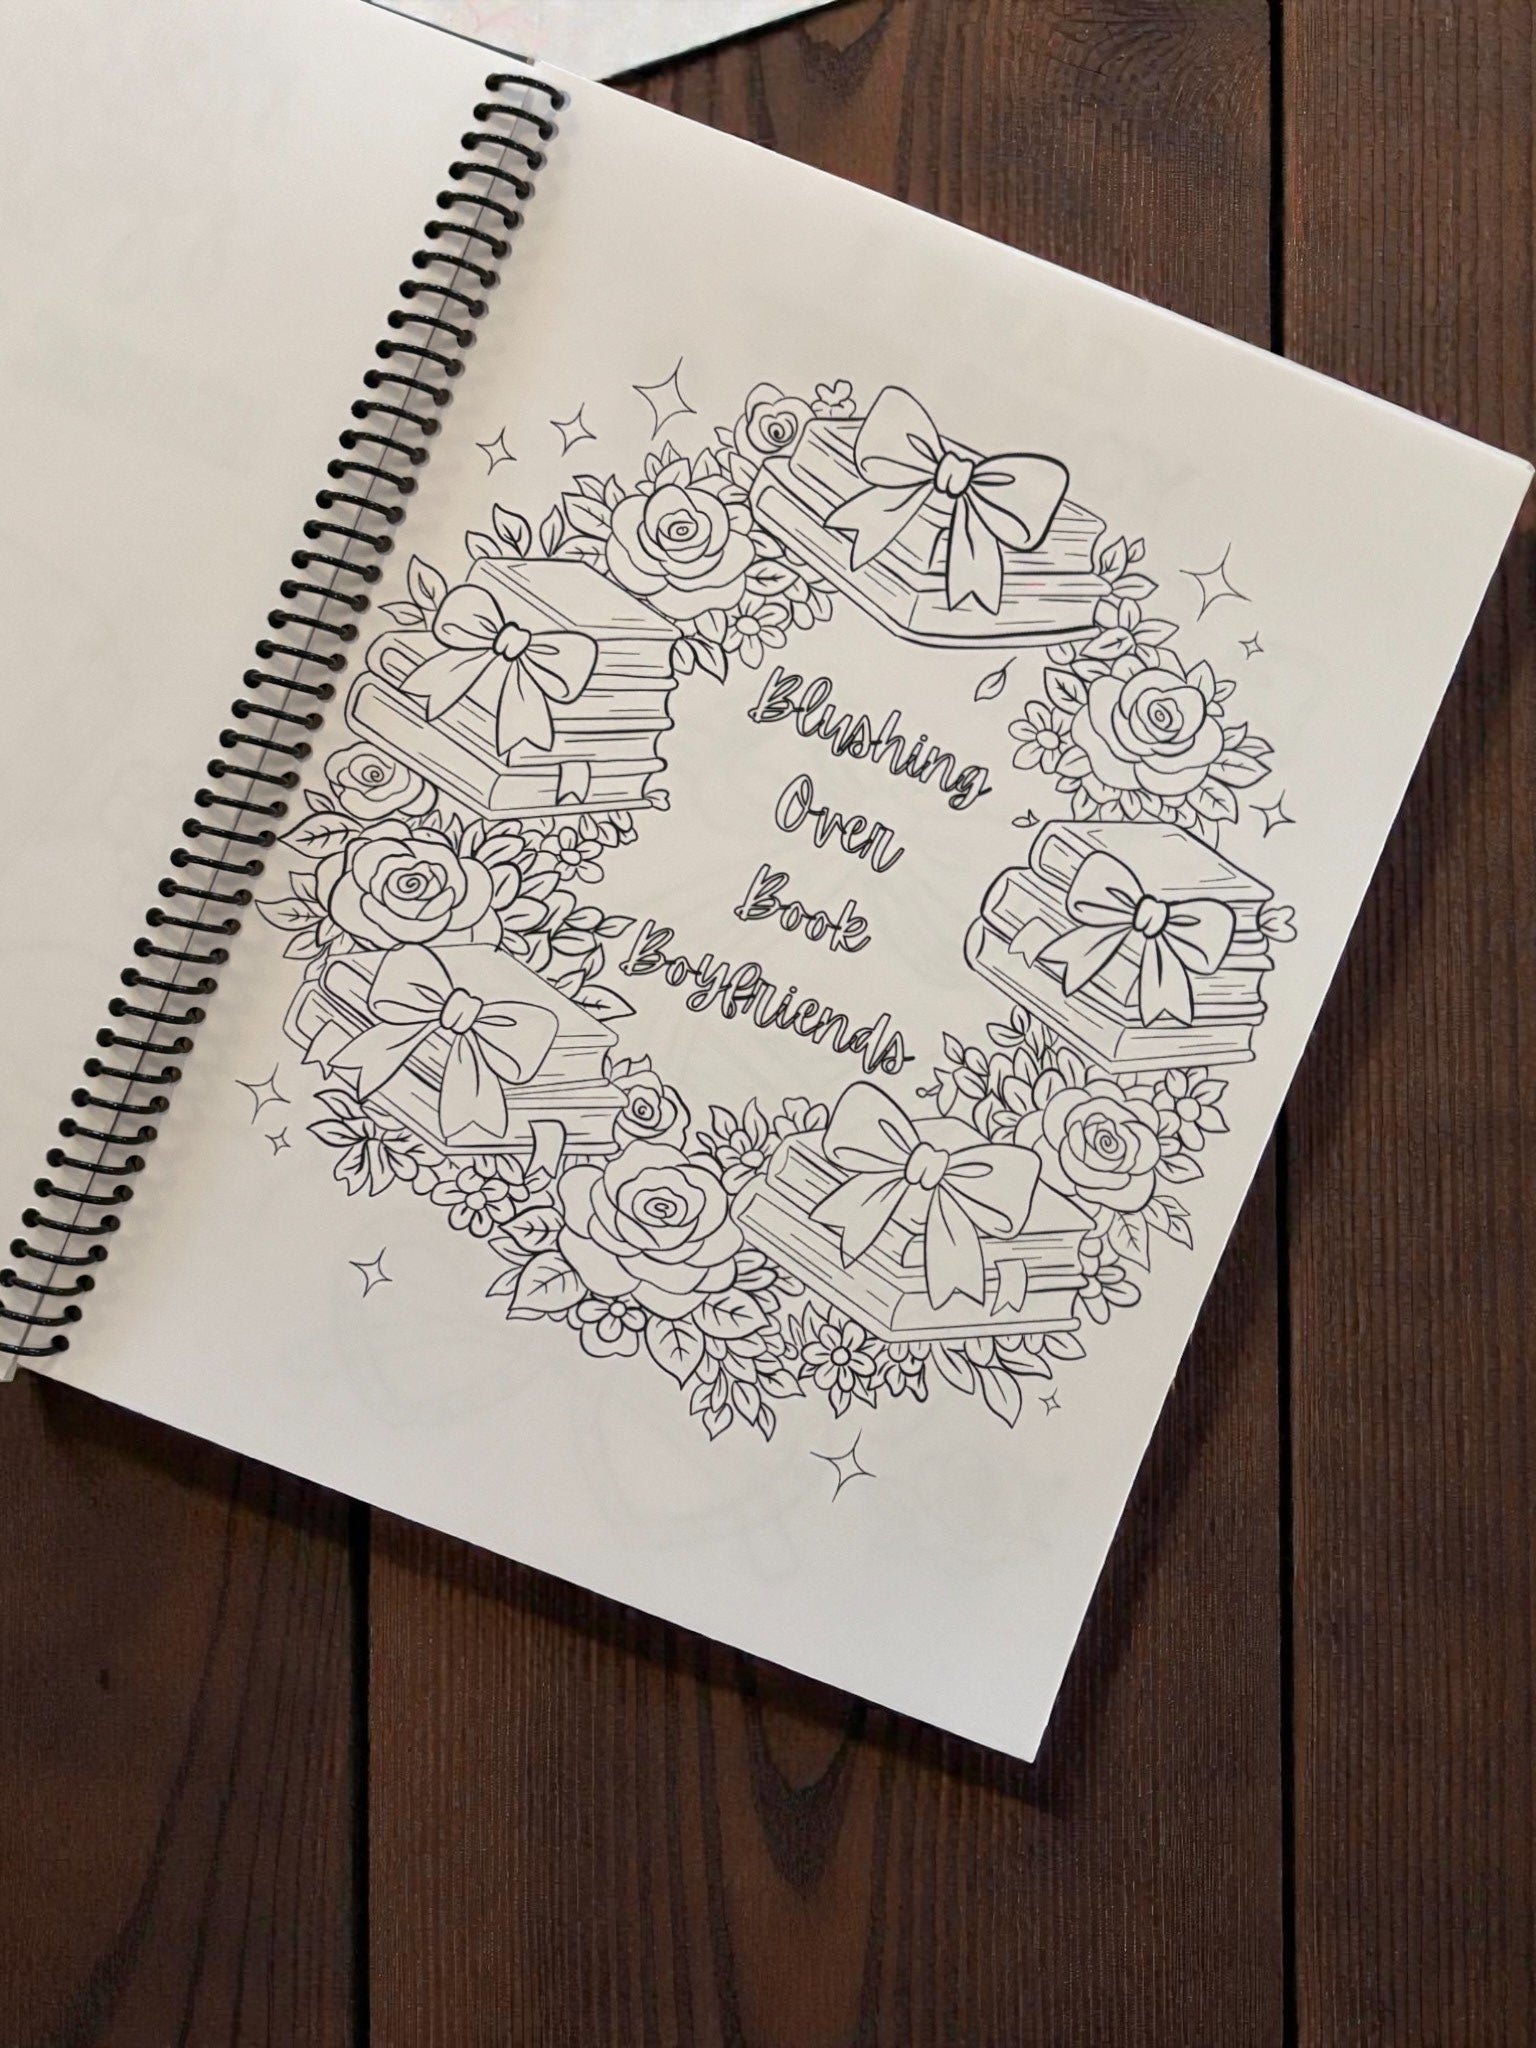 Blushing
Over
Book
Boyfriends